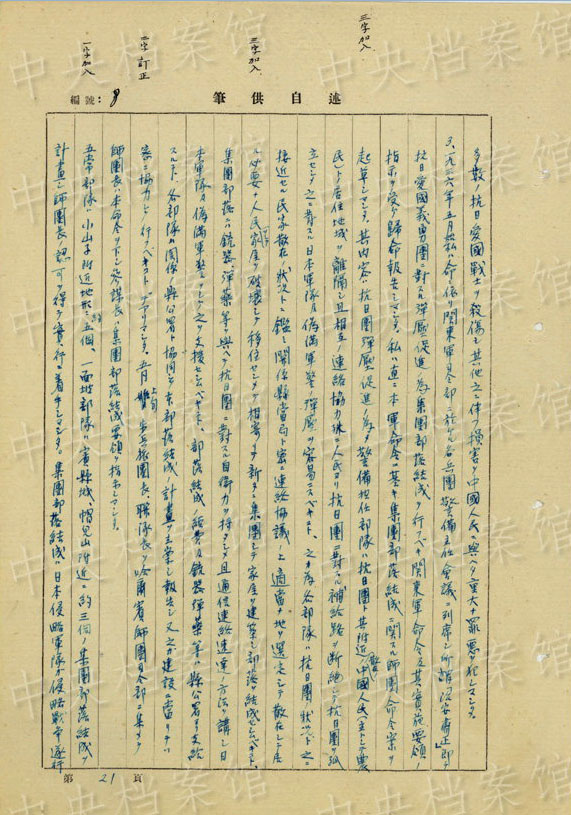 三字加入
三字加入
二字訂正
一字加入
述自供筆
編號：8
多数ノ抗日愛國戦士ヲ殺傷シ其他之ニ伴フ損害ヲ中國人民ニ與ヘタ重大ナ罪悪ヲ犯シマシタ。
3、一九三六年五月始私ハ命ニ依リ関東軍司令部ニ於ケル各兵團警備主任会議ニ列席シ所謂治安粛正即チ
抗日愛國義勇團ニ對スル弾壓促進ノ為集團部落結成ヲ行フベキ関東軍命令及其実施要領ノ
指示ヲ受ケ歸命報告シマシタ。私ハ直ニ本軍命令ニ基キ集團部落結成ニ関スル師團命令案ヲ
起草シマシタ。其内容ハ抗日團弾壓促進ノ為メ警備担任部隊ハ抗日團ト其附近ノ散在中國人民（主トシテ農
民）ト居住地域ヲ離隔シ且相互ノ連絡協力殊ニ人民ヨリ抗日團ニ對スル補給路ヲ断絶シテ抗日團ヲ孤
立セシメ之ニ對スル日本軍隊及偽満軍警ノ弾壓ヲ容易ニスベキコト、之ガ為各部隊ハ抗日團ノ状況ト之ニ
接近セル民家散在ノ状況トニ鑑ミ関係縣當局ト密ニ連絡協議ノ上適當ノ地ヲ選定シテ散在シテ居
ル必要ノ人民家屋ヲ破壊シテ移住セシメテ相寄リテ新タニ集團シテ家屋ヲ建築シ部落ヲ結成セシムベキコト、
集團部落ニハ銃器弾薬等ヲ與ヘテ抗日團ニ對スル自衛力ヲ持タシメ且通信連絡速達ノ方法ヲ講シ日
本軍隊及偽満軍警ヲシテ之ヲ支援セシムベキコト、部落結成ノ諸費及銃器弾薬等ハ縣公署ヨリ支給
スルコト、各部隊ハ関係縣公署ト協同シテ本部落結成ノ計畫ヲ立案シ報告シ又之ガ建設ニ當リテハ
密ニ協力シテ行フベキコト、デアリマシタ。五月上旬歩兵旅團長、聯隊長ヲ哈爾賓師團司令部ニ集メテ
師團長ハ本命令ヲ下シ参謀長ハ集團部落結成要領ヲ指示シマシタ。
五常部隊ハ小山子附近地形ニ約五個、一面坡部隊ハ賓縣城、帽兒山附近ニ約三個ノ集團部落結成ヲ
計畫シ師團長ノ認可ヲ得テ実行ニ着手シマシタ。集團部落結成ハ日本侵略軍隊ガ侵略戦争遂行
第 21 頁
中央档案馆